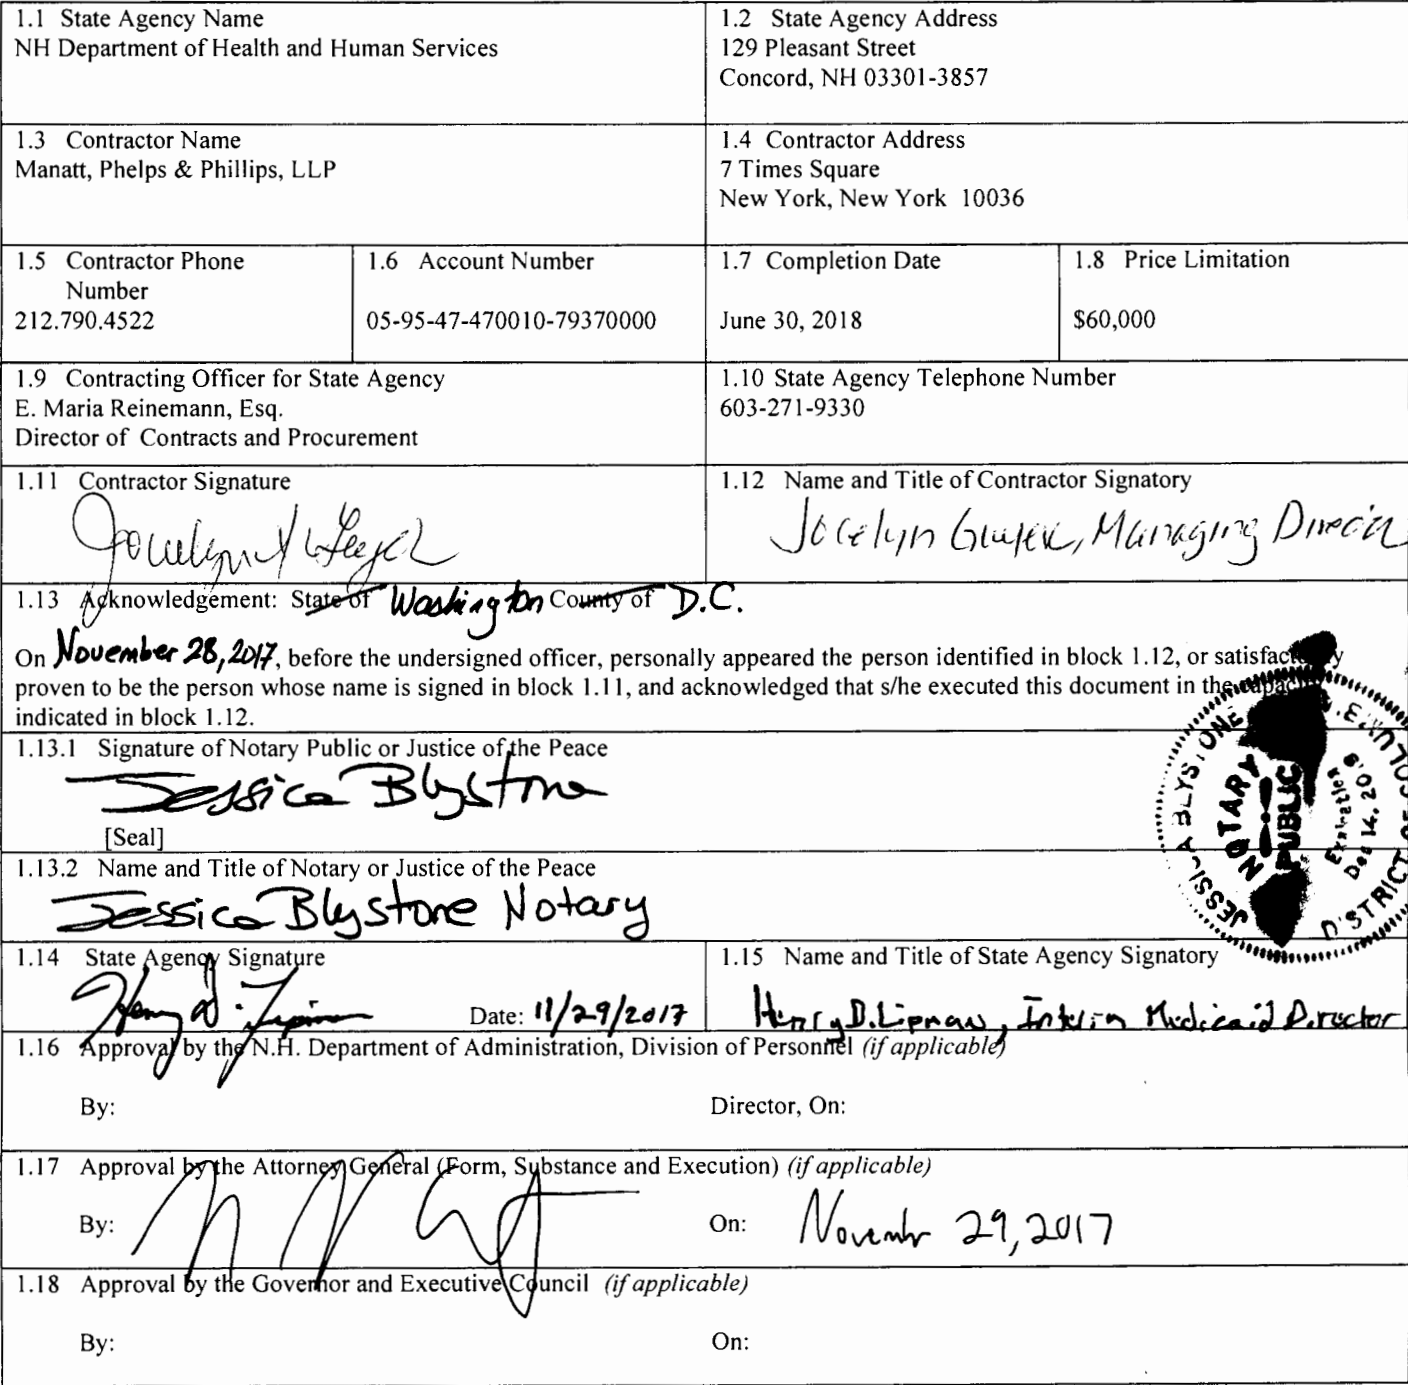 1.1 State Agency Name
NH Department of Health and Human Services
1.2 State Agency Address
129 Pleasant Street
Concord, NH 03301-3857
1.3 Contractor Name
Manatt, Phelps & Phillips, LLP
1.4 Contractor Address
7 Times Square
New York, New York 10036
1.5 Contractor Phone
Number
212.790.4522
1.6 Account Number
05-95-47-470010-79370000
1.7 Completion Date
June 30, 2018
1.8 Price Limitation
$60,000
1.9 Contracting Officer for State Agency
E. Maria Reinemann, Esq.
Director of Contracts and Procurement
1.10 State Agency Telephone Number
603-271-9330
1.11 Contractor Signature
1.12 Name and Title of Contractor Signatory
Jocelyn Guyer, Managing Director
1.13 Acknowledgement: State of Washington County of D.C.
On November 28, 2017, before the undersigned officer, personally appeared the person identified in block 1.12, or satisfactorily
proven to be the person whose name is signed in block 1.11, and acknowledged that s/he executed this document in the capacity
indicated in block 1.12.
1.13.1 Signature of Notary Public or Justice of the Peace
Jessica Blystone
[Seal]
JESSICA BLYSTONE
NOTARY
PUBLIC
Expiration
Dec 14, 2019
DISTRICT OF COLUMBIA
1.13.2 Name and Title of Notary or Justice of the Peace
Jessica Blystone Notary
1.14 State Agency Signature
Henry D. Lipman
Date: 11/29/2017
1.15 Name and Title of State Agency Signatory
Henry D. Lipman, Interim Medicaid Director
1.16 Approval by the N.H. Department of Administration, Division of Personnel (if applicable)
By:
Director, On:
1.17 Approval by the Attorney General (Form, Substance and Execution) (if applicable)
By:
On: November 29, 2017
1.18 Approval by the Governor and Executive Council (if applicable)
By:
On: